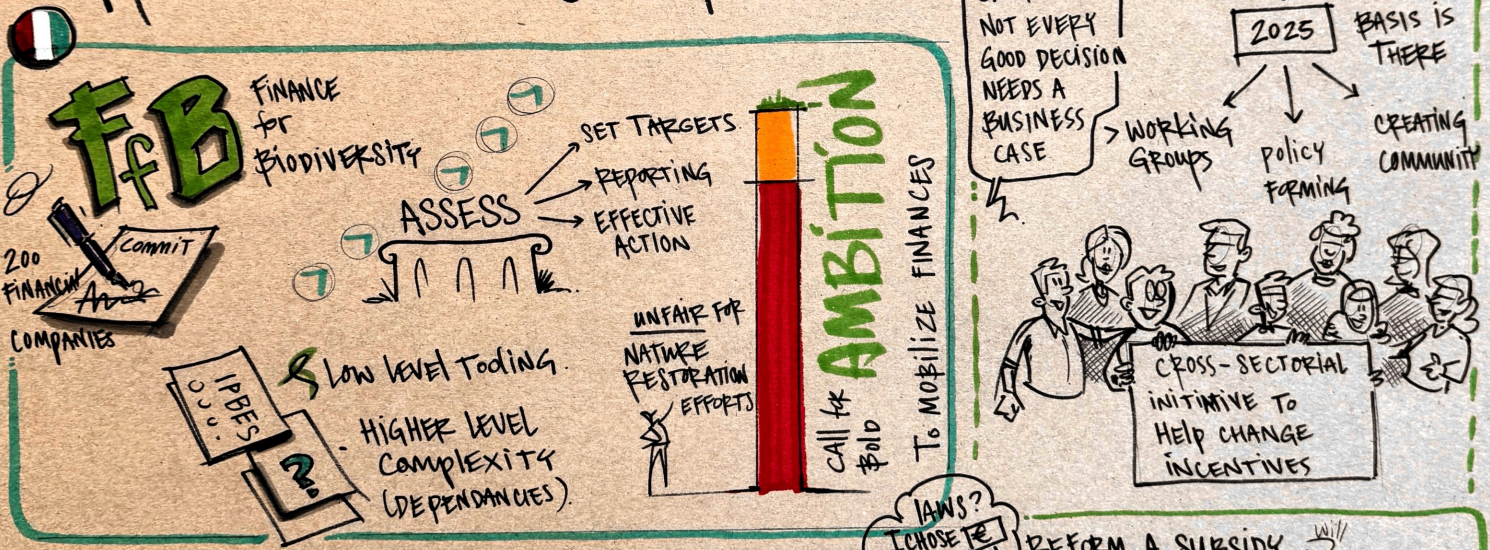 FfB
FINANCE
for
BIODIVERSITY
COMMIT
200
FINANCIAL
COMPANIES
ASSESS
SET TARGETS.
REPORTING
EFFECTIVE
ACTION
IPBES
?
LOW LEVEL TOOLING.
HIGHER LEVEL
COMPLEXITY
(DEPENDANCIES).
UNFAIR FOR
NATURE
RESTORATION
EFFORTS
CALL for
BOLD
AMBITION
To MOBILIZE FINANCES
NOT EVERY
GOOD DECISION
NEEDS A
BUSINESS
CASE
2025
BASIS IS
THERE
WORKING
GROUPS
POLICY
FORMING
CREATING
COMMUNITY
CROSS-SECTORIAL
INITIATIVE TO
HELP CHANGE
INCENTIVES
LAWS?
I CHOSE €
REFORM A SUBSIDY
Will